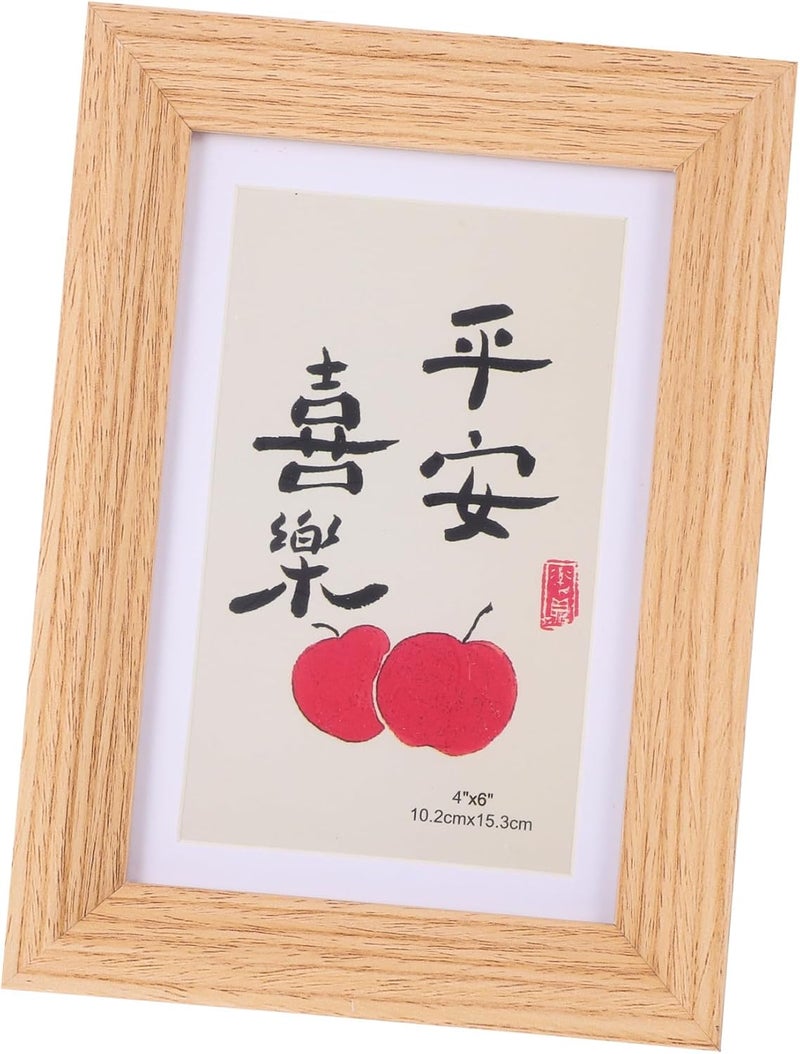 平安
喜樂
4"x6"
10.2cmx15.3cm